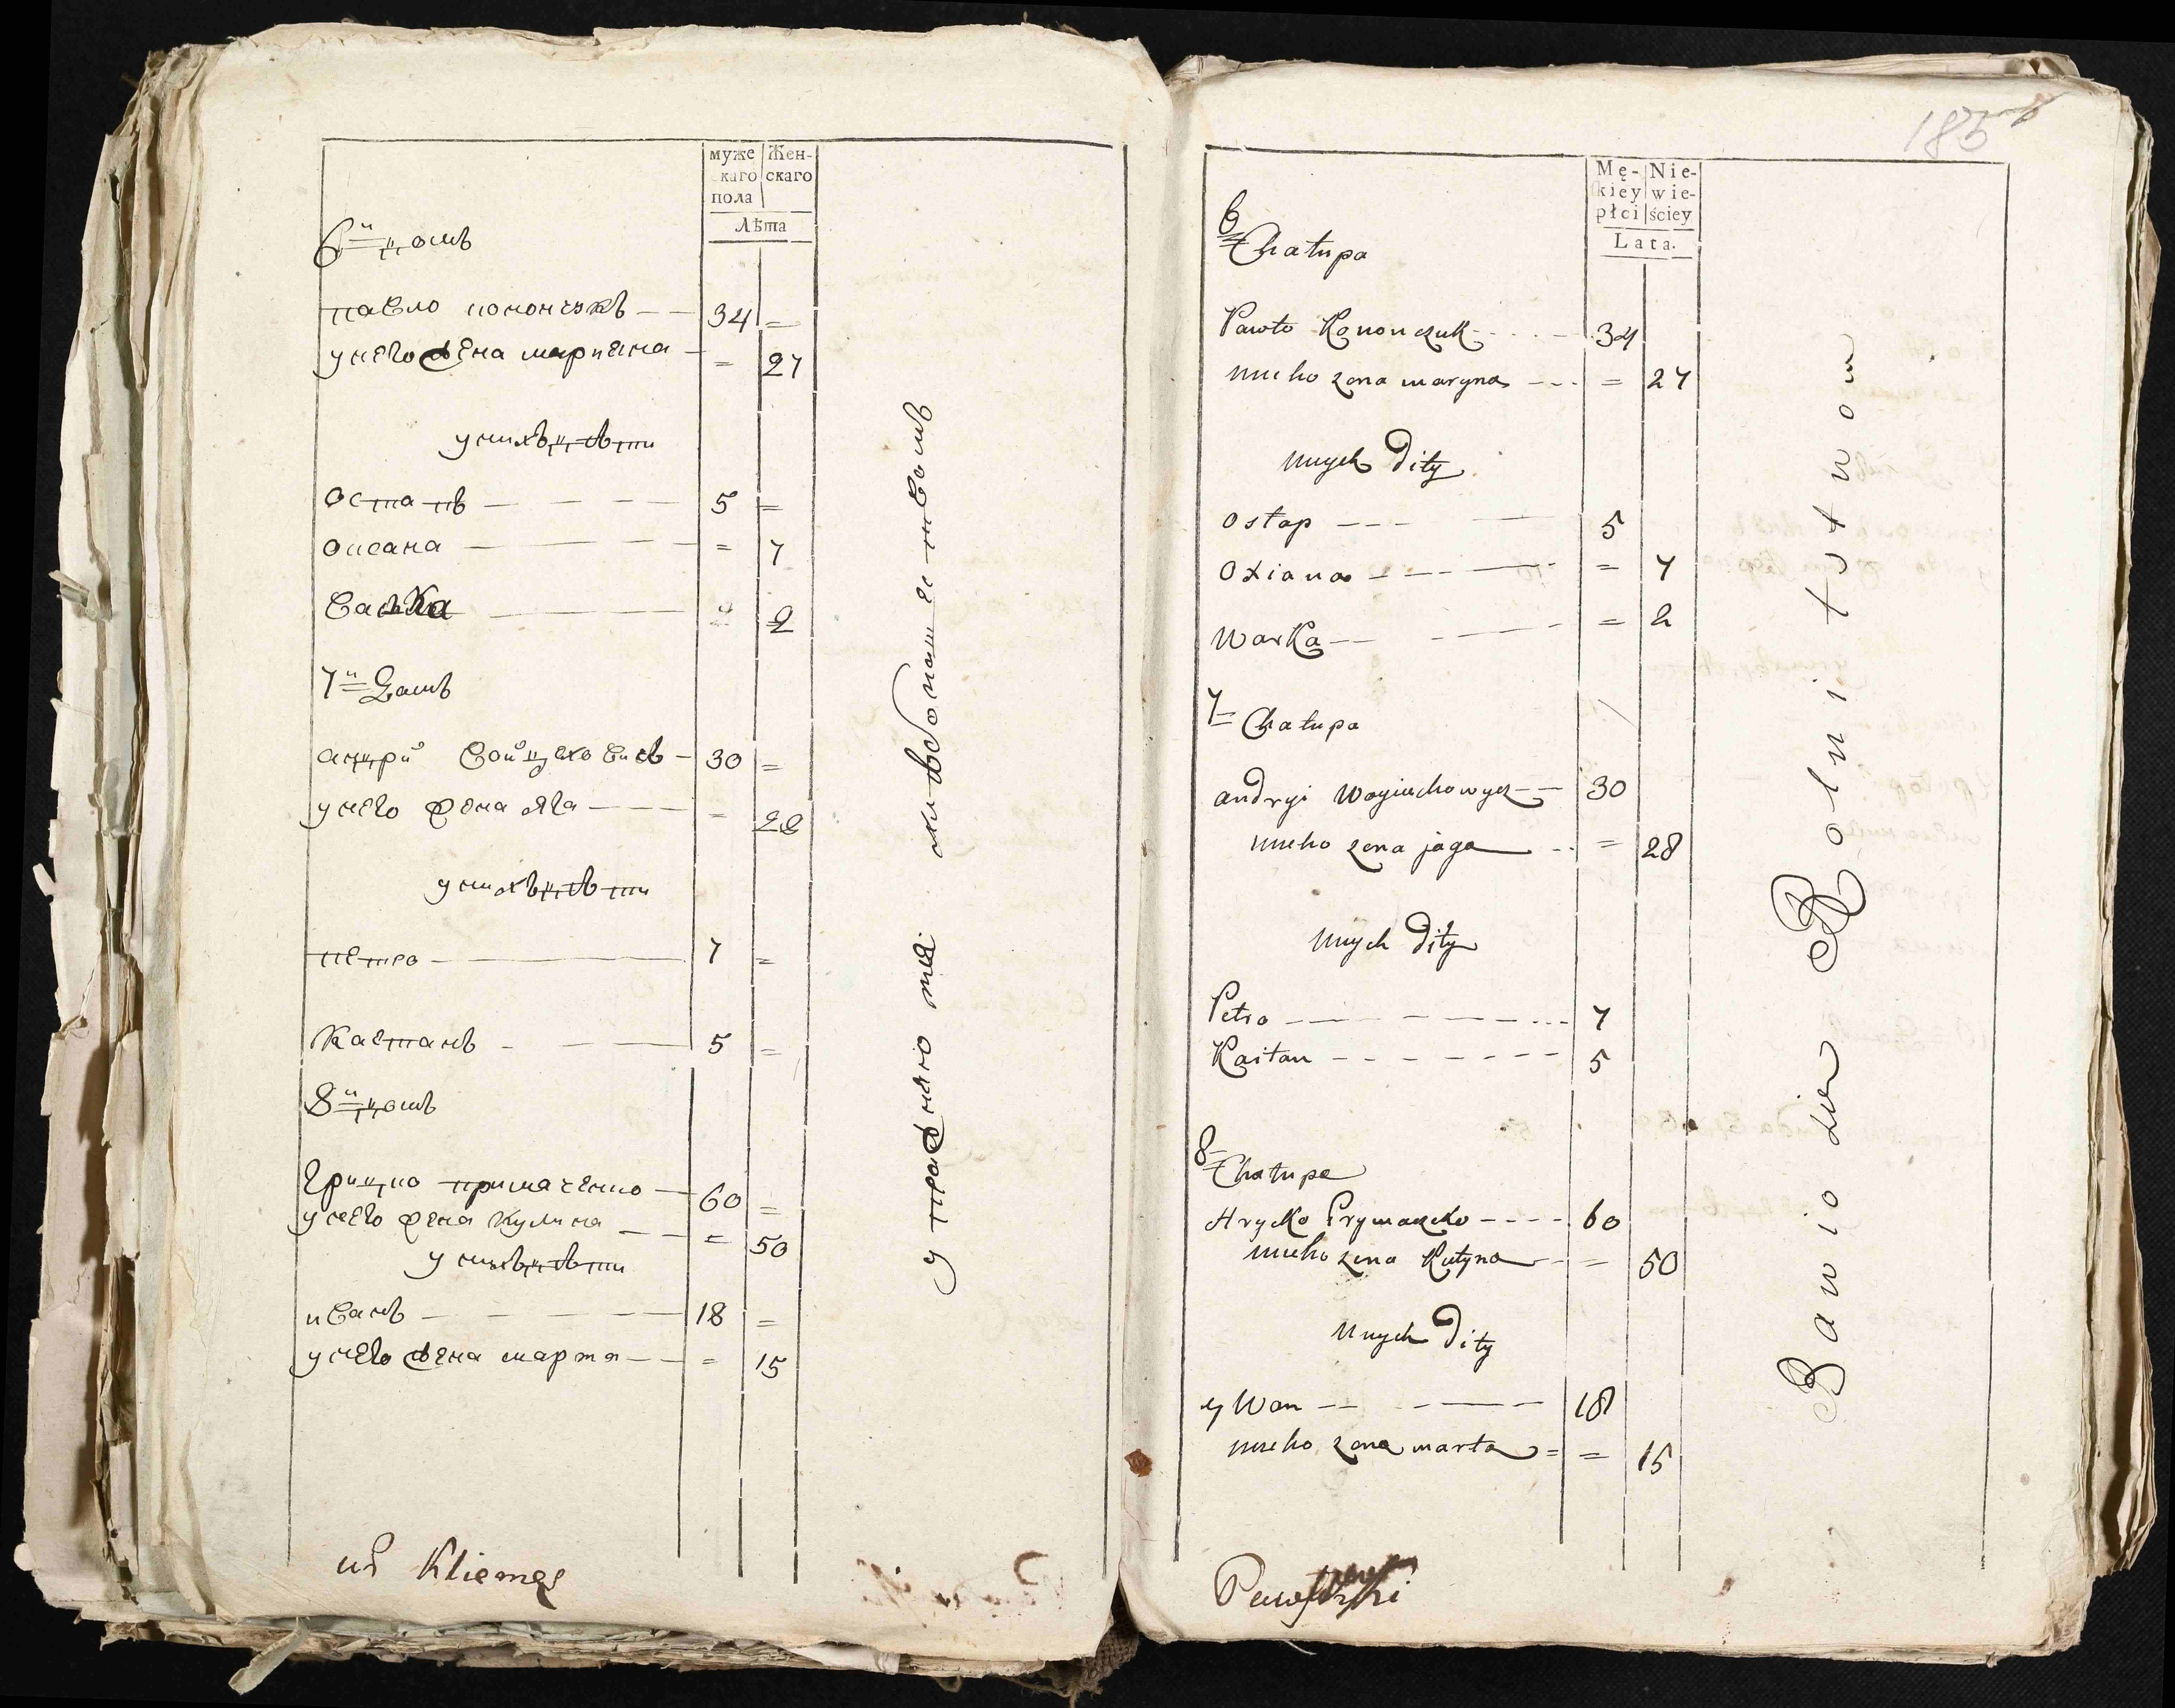 муже
скаго
пола
Жен-
скаго
Лѣта
6й домъ
павло конончукъ 34 =
унего жена марияна = 27
унихъ дѣти
Остапъ 5 =
Оксана = 7
варка 2
7й Домъ
андрй войцеховичъ 30 =
унего жена яга =
унихъ дѣти
петро 7 =
Каетанъ 5 =
8й домъ
грицко примаченко 60 =
унего жена кулина = 50
унихъ дѣти
иванъ 18 =
унего жена марта = 15
упражняются хлѣбопашествомъ
Kliemes
185
Mę-
kiey
płci
Nie-
wie-
ściey
Lata.
6 Chałupa
Pawło Kononczuk 34
unieho zona maryna = 27
unych dity
Ostap 5
Oxiana = 7
Warka = 2
7 Chałupa
andryi Woyiechowycz 30
unieho zona jaga = 28
unych Dity
Petro 7
Kaitan 5
8 Chałupa
Hrycko Prymaczko 60
unieho zona Kulyna = 50
Unych Dity
yWan 18
unieho zona marta = 15
Bawio sie Rolnitstwom